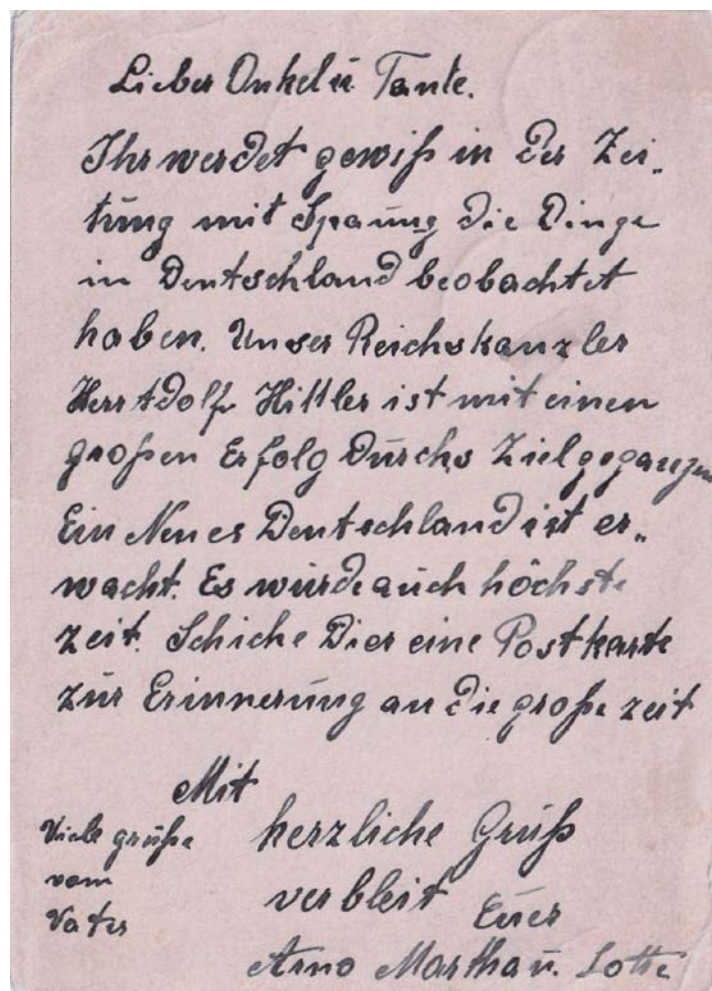 Lieber Onkel u Tante.
Ihr werdet gewiß in der Zei„
tung mit Spaung die Dinge
in Deutschland beobachtet
haben. Unser Reichskanzler
Herr Adolf Hittler ist mit einen
großen Erfolg durchs Ziel gegangen
Ein Neues Deutschland ist er„
wacht. Es wurde auch höchste
zeit. Schicke Dier eine Postkarte
zur Erinnerung an die große zeit
Mit
herzliche Gruß
verbleit Euer
Arno Martha u. Lotte
Viele grüße
vom
Vater